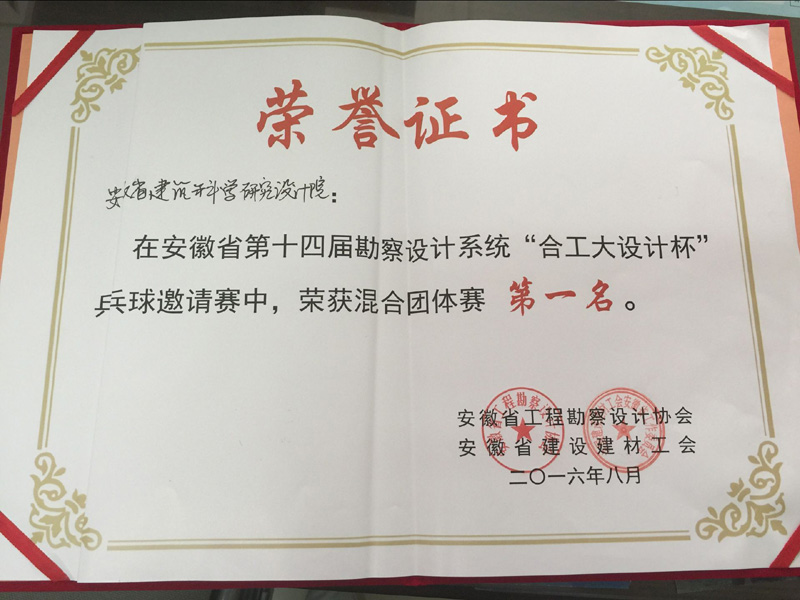 荣誉证书
安徽省建筑科学研究设计院：
在安徽省第十四届勘察设计系统“合工大设计杯”
乒球邀请赛中，荣获混合团体赛 第一名。
安徽省工程勘察设计协会
安徽省建设建材工会
二〇一六年八月